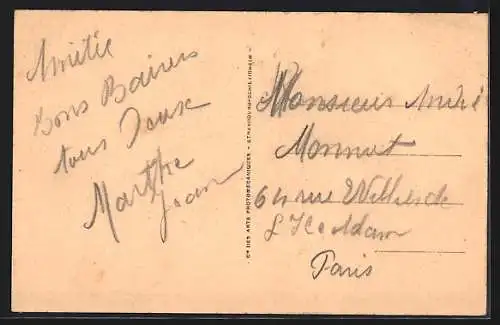 Amitié
bons Baisers
tous Deux
Marthe
Jean
Cie DES ARTS PHOTOMÉCANIQUES - STRASBOURG-SCHILTIGHEIM
Monsieur André
Monnot
64 rue Williers de
L'Isle Adam
Paris